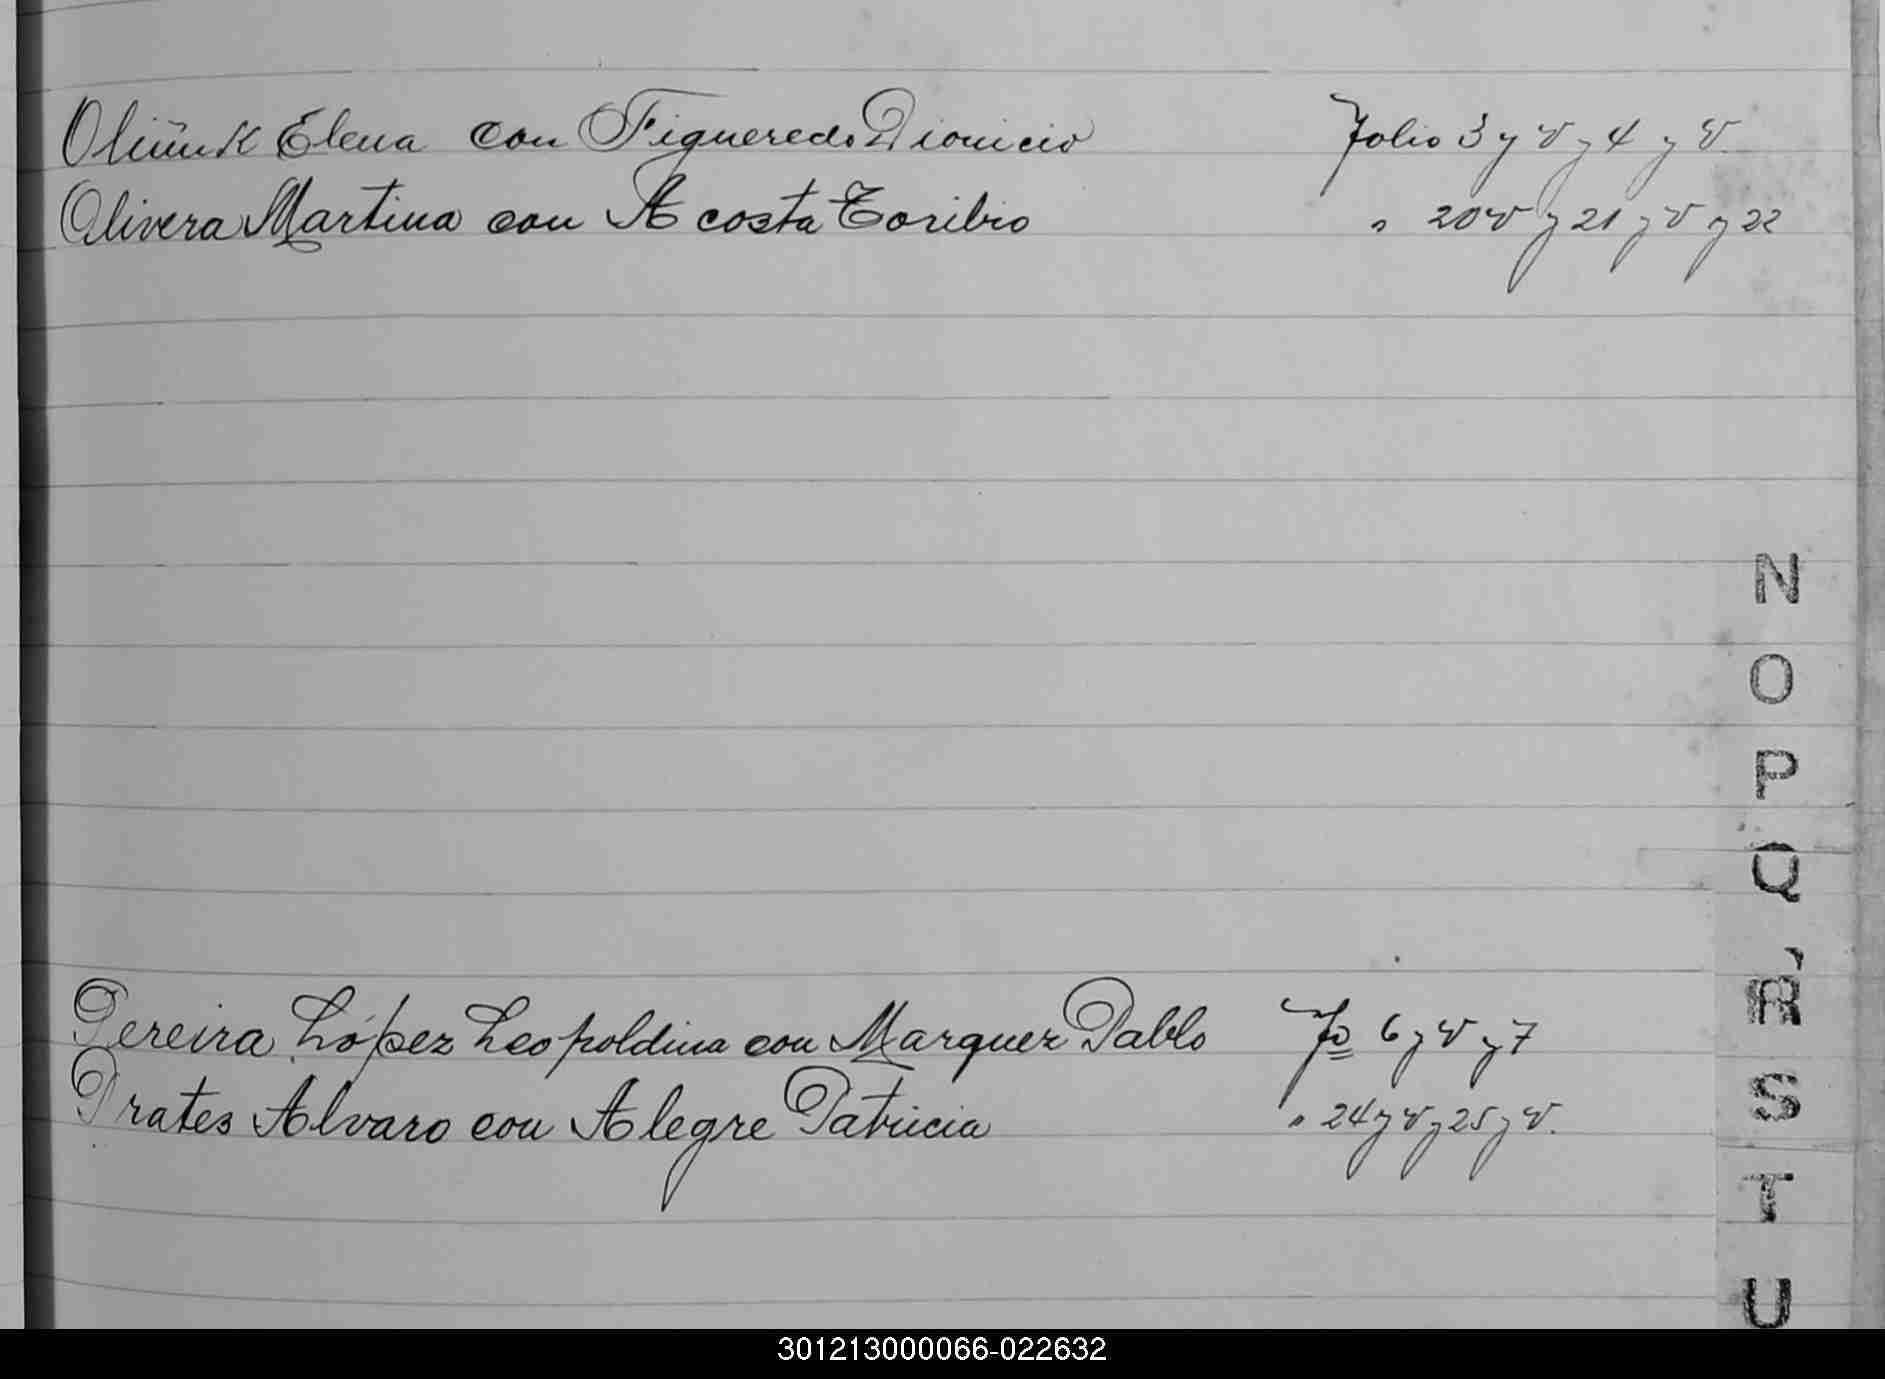 Elena con Figueredo Dionicio Folio 3 y v y 4 y v.
Olivera Martina con Acosta Toribio " 20 v y 21 y v y 22
N
O
P
Q
Pereira López Leopoldina con Marquez Pablo Fo 6 y v y 7
R
Prates Alvaro con Alegre Patricia " 24 y v y 25 y v.
S
T
U
301213000066-022632